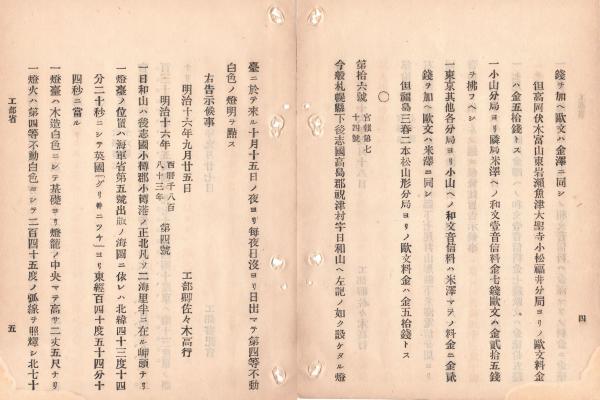 錢ヲ加ヘ歐文ハ金澤ニ同シ
但高岡伏木富山東岩瀨魚津大聖寺小松福井分局ヨリノ歐文料金
ハ金五拾錢トス
一小山分局ヨリ隣局米澤ヘノ和文壹音信料金七錢歐文ハ金貳拾五錢
ヲ拂フヘシ
一東京其他各分局ヨリ小山ヘノ和文音信料ハ米澤マテノ料金ニ金貳
錢ヲ加ヘ歐文ハ米澤ニ同シ
但福島三春二本松山形分局ヨリノ歐文料金ハ金五拾錢トス
〇
第拾六號 官報第七十四號
今般札幌縣下後志國高島郡祝津村字日和山ヘ左記ノ如ク設ケタル燈
四
臺ニ於テ來ル十月十五日ノ夜ヨリ每夜日沒ヨリ日出マテ第四等不動
白色ノ燈明ヲ點ス
右告示候事
明治十六年九月廿五日 工部卿佐々木高行
明治十六年 西曆千八百八十三年 第四號
一日和山ハ後志國小樽郡小樽港ノ正北凡ソ二海里半ニ在ル岬頭ナリ
一燈臺ノ位置ハ海軍省第五號出版ノ海圖ニ依レハ北緯四十三度十四
分二十秒ニシテ英國「グリ井ニツチ」ヨリ東經百四十度五十四分十
四秒ニ當ル
一燈臺ハ木造白色ニシテ基礎ヨリ燈籠ノ中央マテ高サ二丈五尺ナリ
一燈火ハ第四等不動白色ニシテ二百四十五度ノ弧線ヲ照輝シ北七十
工部省
五